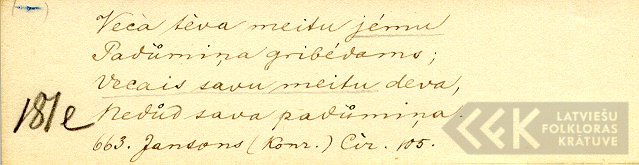 Vecà tèva meitu jému
Padůmiņa gribédams;
Vecais savu meitu deva,
Nedůd sava padůmiņa.
181e
663. Jansons (Konr.) Cīr. 105.
LATVIEŠU
FOLKLORAS
KRĀTUVE